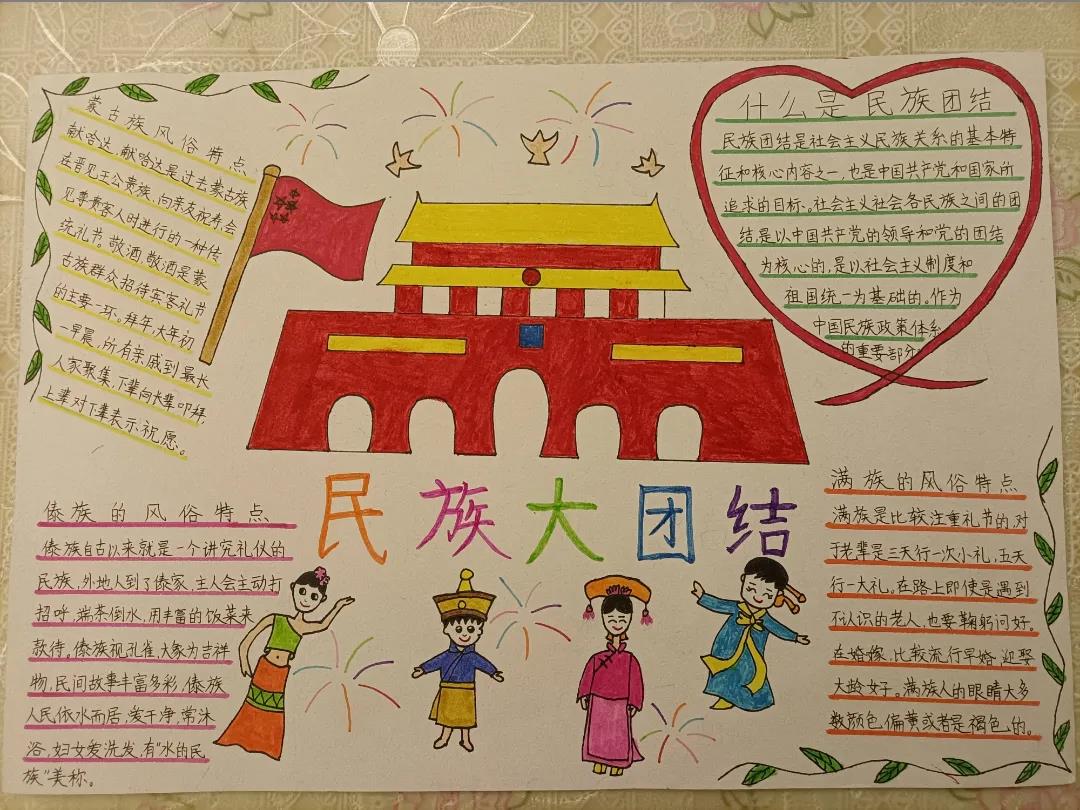 蒙古族风俗特点
献哈达,献哈达是过去蒙古族
在晋见王公贵族、向亲友祝寿、会
见尊贵客人时进行的一种传
统礼书。敬酒,敬酒是蒙
古族群众招待宾客礼节
的主要一环。拜年,大年初
一早晨,所有亲戚到最长
人家聚集,下辈向长辈叩拜,
上辈对下辈表示祝愿。
什么是民族团结
民族团结是社会主义民族关系的基本特
征和核心内容之一,也是中国共产党和国家所
追求的目标。社会主义社会各民族之间的团
结,是以中国共产党的领导和党的团结
为核心的,是以社会主义制度和
祖国统一为基础的。作为
中国民族政策体系
的重要部分
民族大团结
傣族的风俗特点
傣族自古以来就是一个讲究礼仪的
民族,外地人到了傣家,主人会主动打
招呼,端茶倒水,用丰富的饭菜来
款待。傣族视孔雀、大象为吉祥
物,民间故事丰富多彩,傣族
人民依水而居,爱干净,常沐
浴、妇女爱洗发,有“水的民
族”美称。
满族的风俗特点
满族是比较注重礼节的,对
于老辈是三天行一次小礼,五天
行一大礼。在路上即使是遇到
不认识的老人,也要鞠躬问好。
在婚嫁,比较流行早婚,迎娶
大龄女子。满族人的眼睛大多
数颜色偏黄或者是褐色的。